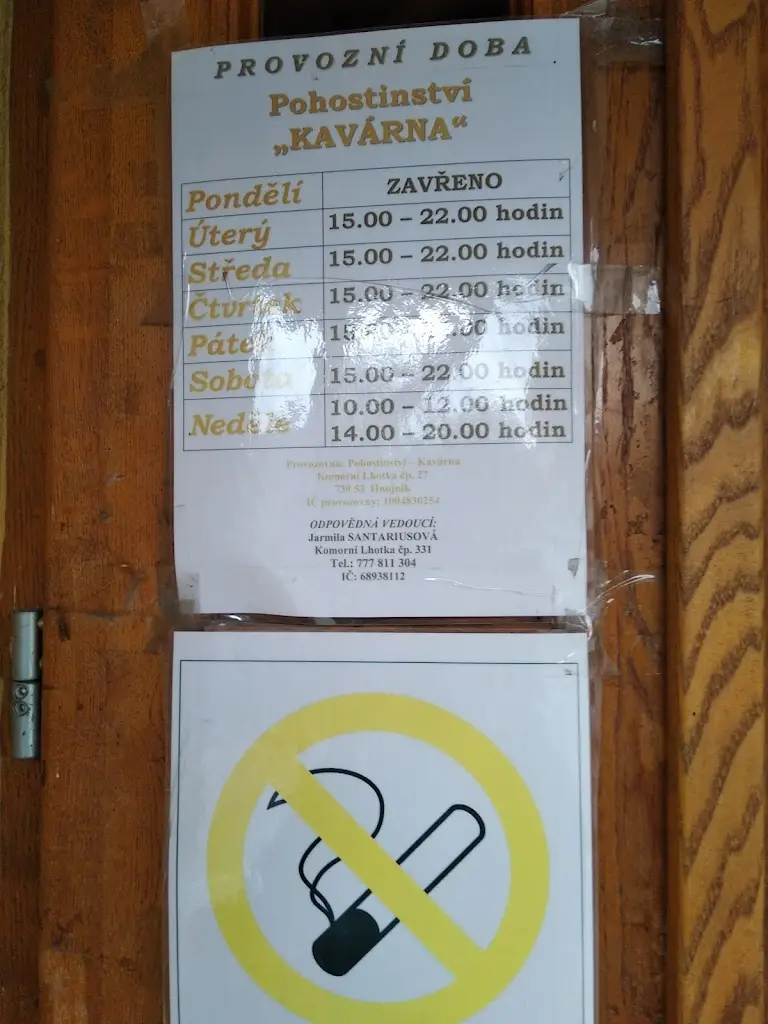 PROVOZNÍ DOBA
Pohostinství
„KAVÁRNA“
Pondělí ZAVŘENO
Úterý 15.00 – 22.00 hodin
Středa 15.00 – 22.00 hodin
Čtvrtek 15.00 – 22.00 hodin
Pátek hodin
Sobota 15.00 – 22.00 hodin
Neděle 10.00 – 12.00 hodin
14.00 – 20.00 hodin
Provozovna: Pohostinství – Kavárna
Komorní Lhotka čp. 27
739 53 Hnojník
IČ provozovny: 1004830254
ODPOVĚDNÁ VEDOUCÍ:
Jarmila SANTARIUSOVÁ
Komorní Lhotka čp. 331
Tel.: 777 811 304
IČ: 68938112